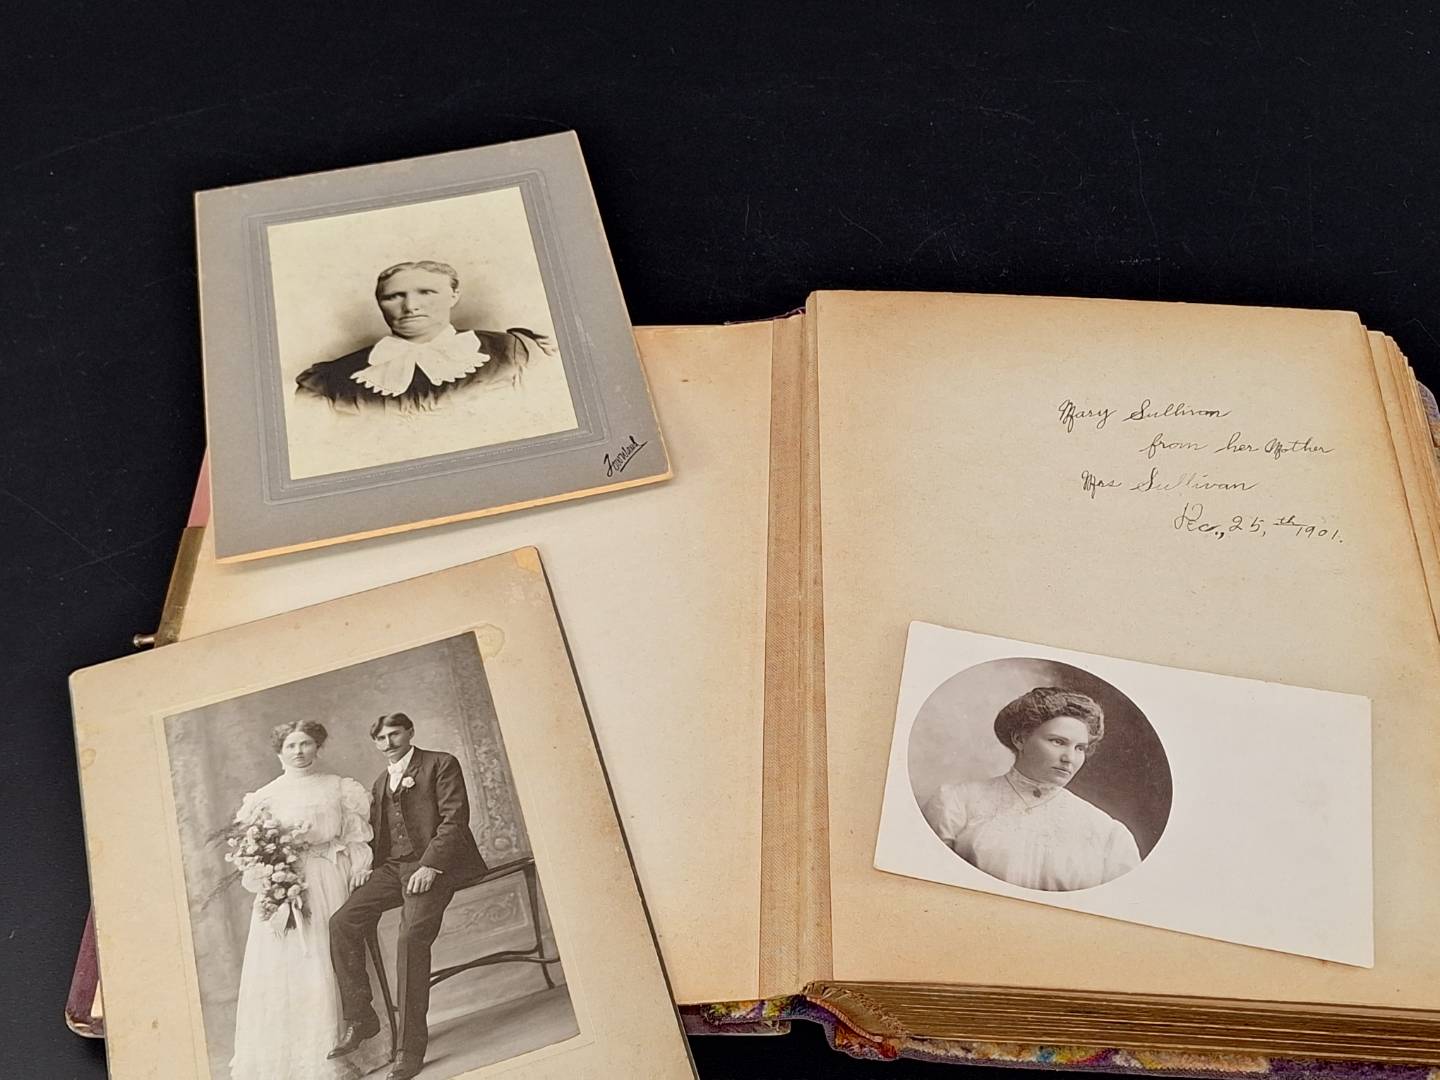 Mary Sullivan
from her Mother
Mrs Sullivan
Dec., 25,th 1901.